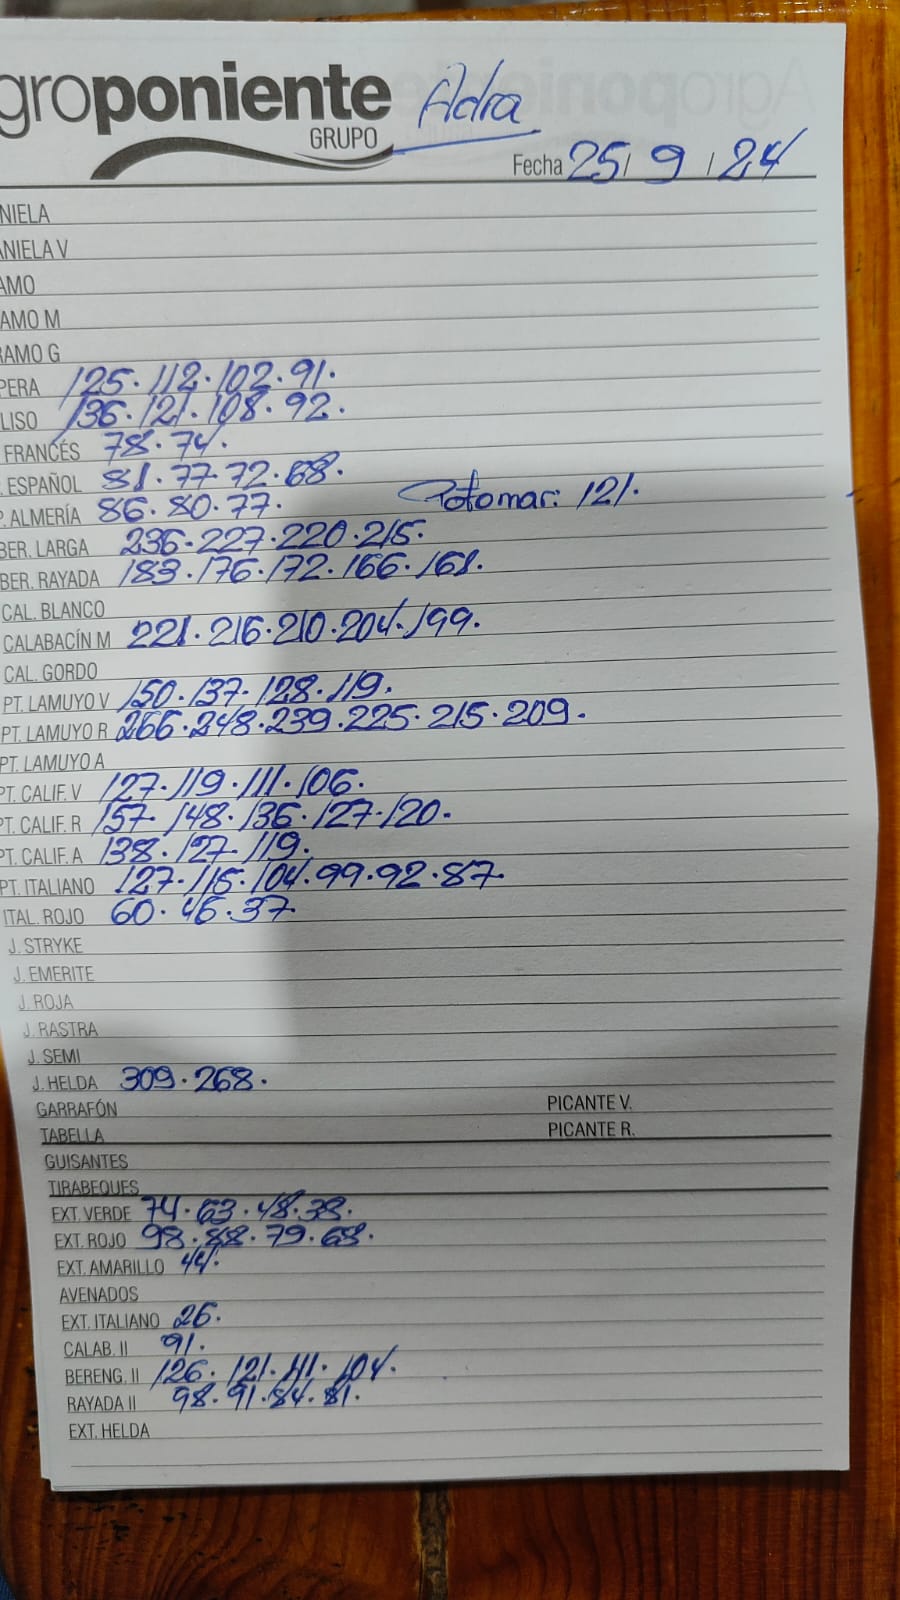 groponiente Adra
GRUPO
Fecha 25/ 9 / 24
NIELA
ANIELA V
AMO
AMO M
RAMO G
PERA 125. 112. 102. 91.
LISO 136. 121. 108. 92.
FRANCÉS 78. 74.
. ESPAÑOL 81. 77. 72. 68.
P. ALMERÍA 86. 80. 77. Potomar: 121.
BER. LARGA 236. 227. 220. 215.
BER. RAYADA 183. 176. 172. 166. 161.
CAL. BLANCO
CALABACÍN M 221. 216. 210. 204. 199.
CAL. GORDO
PT. LAMUYO V 150. 137. 128. 119.
PT. LAMUYO R 266. 248. 239. 225. 215. 209.
PT. LAMUYO A
PT. CALIF. V 127. 119. 111. 106.
PT. CALIF. R 157. 148. 136. 127. 120.
PT. CALIF. A 138. 127. 119.
PT. ITALIANO 127. 115. 104. 99. 92. 87.
ITAL. ROJO 60. 46. 37.
J. STRYKE
J. EMERITE
J. ROJA
J. RASTRA
J. SEMI
J. HELDA 309. 268.
GARRAFÓN PICANTE V.
TABELLA PICANTE R.
GUISANTES
TIRABEQUES
EXT. VERDE 74. 63. 48. 38.
EXT. ROJO 98. 88. 79. 68.
EXT. AMARILLO 44.
AVENADOS
EXT. ITALIANO 26.
CALAB. II 91.
BERENG. II 126. 121. 111. 104.
RAYADA II 98. 91. 84. 81.
EXT. HELDA